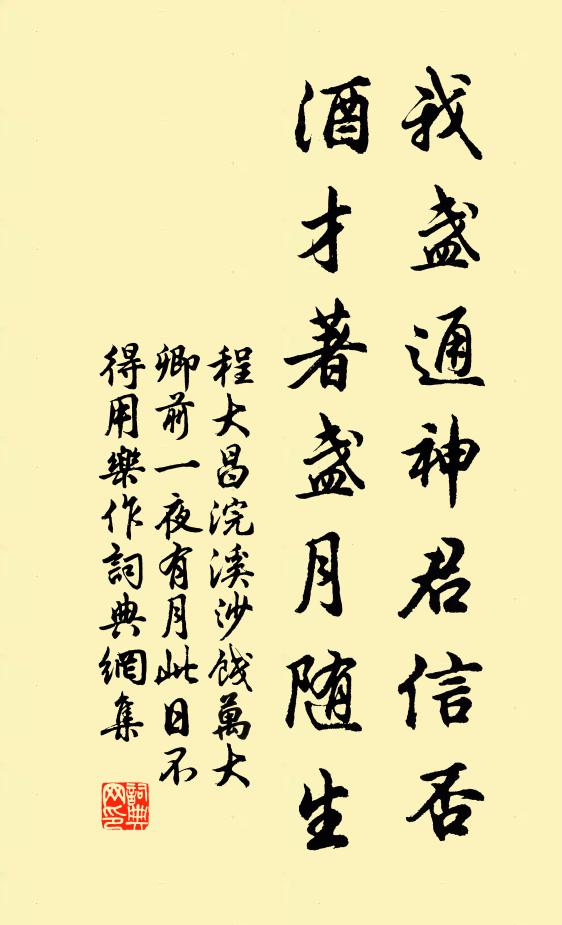 我盏通神君信否
酒才著盏月随生
程大昌浣溪沙餞萬大
卿前一夜有月此日不
得用樂作詞典網集
詞典
网印